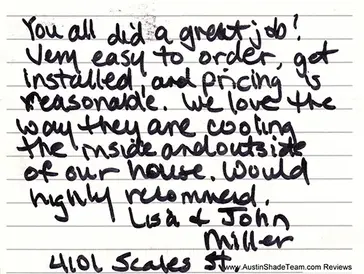 You all did a great job!
Very easy to order, get
installed, and pricing is
reasonable. We love the
way they are cooling
the inside and outside
of our house. Would
highly recommend.
Lisa & John
Miller
4101 Scales St
www.AustinShadeTeam.com Reviews